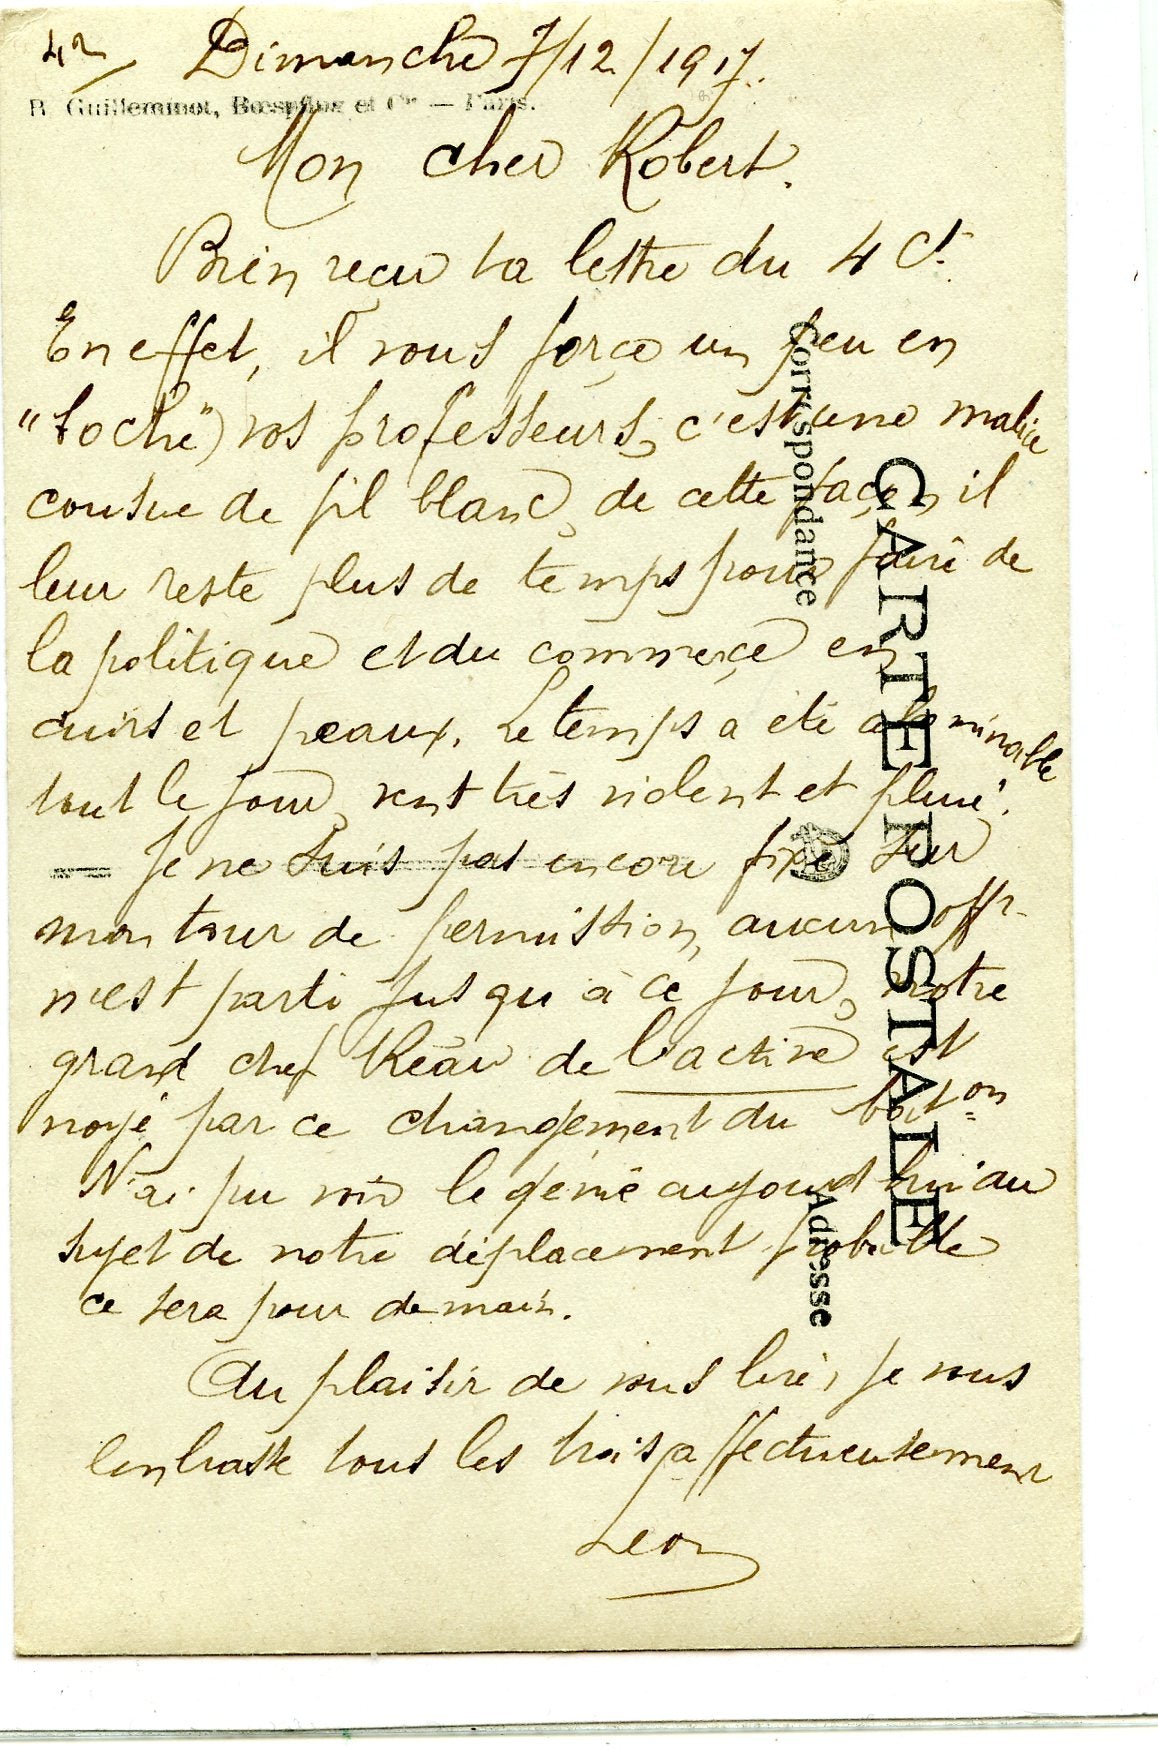 42/ Dimanche 7/12/1917.
R. Guilleminot, Bœspflug et Cie — Paris.
Mon cher Robert.
Bien reçu ta lettre du 4 ct.
En effet, il vous force un peu en
"            " vos professeurs, c'est une malice
cousue de fil blanc, de cette façon il
leur reste plus de temps pour faire de
la politique et du commerce en
cuirs et peaux. Le temps a été abominable
tout le jour, vent très violent et pluie.
— Je ne suis pas encore fixé sur
mon tour de permission, aucun offr.
n'est parti jusqu'à ce jour, notre
grand chef Réau de l'active est
noyé par ce changement du batON
N'ai pu voir le génie aujourd'hui au
sujet de notre déplacement probable
ce sera pour demain.
Au plaisir de vous lire, je vous
embrasse tous les trois affectueusement
Leon
CARTE POSTALE
Correspondance
Adresse